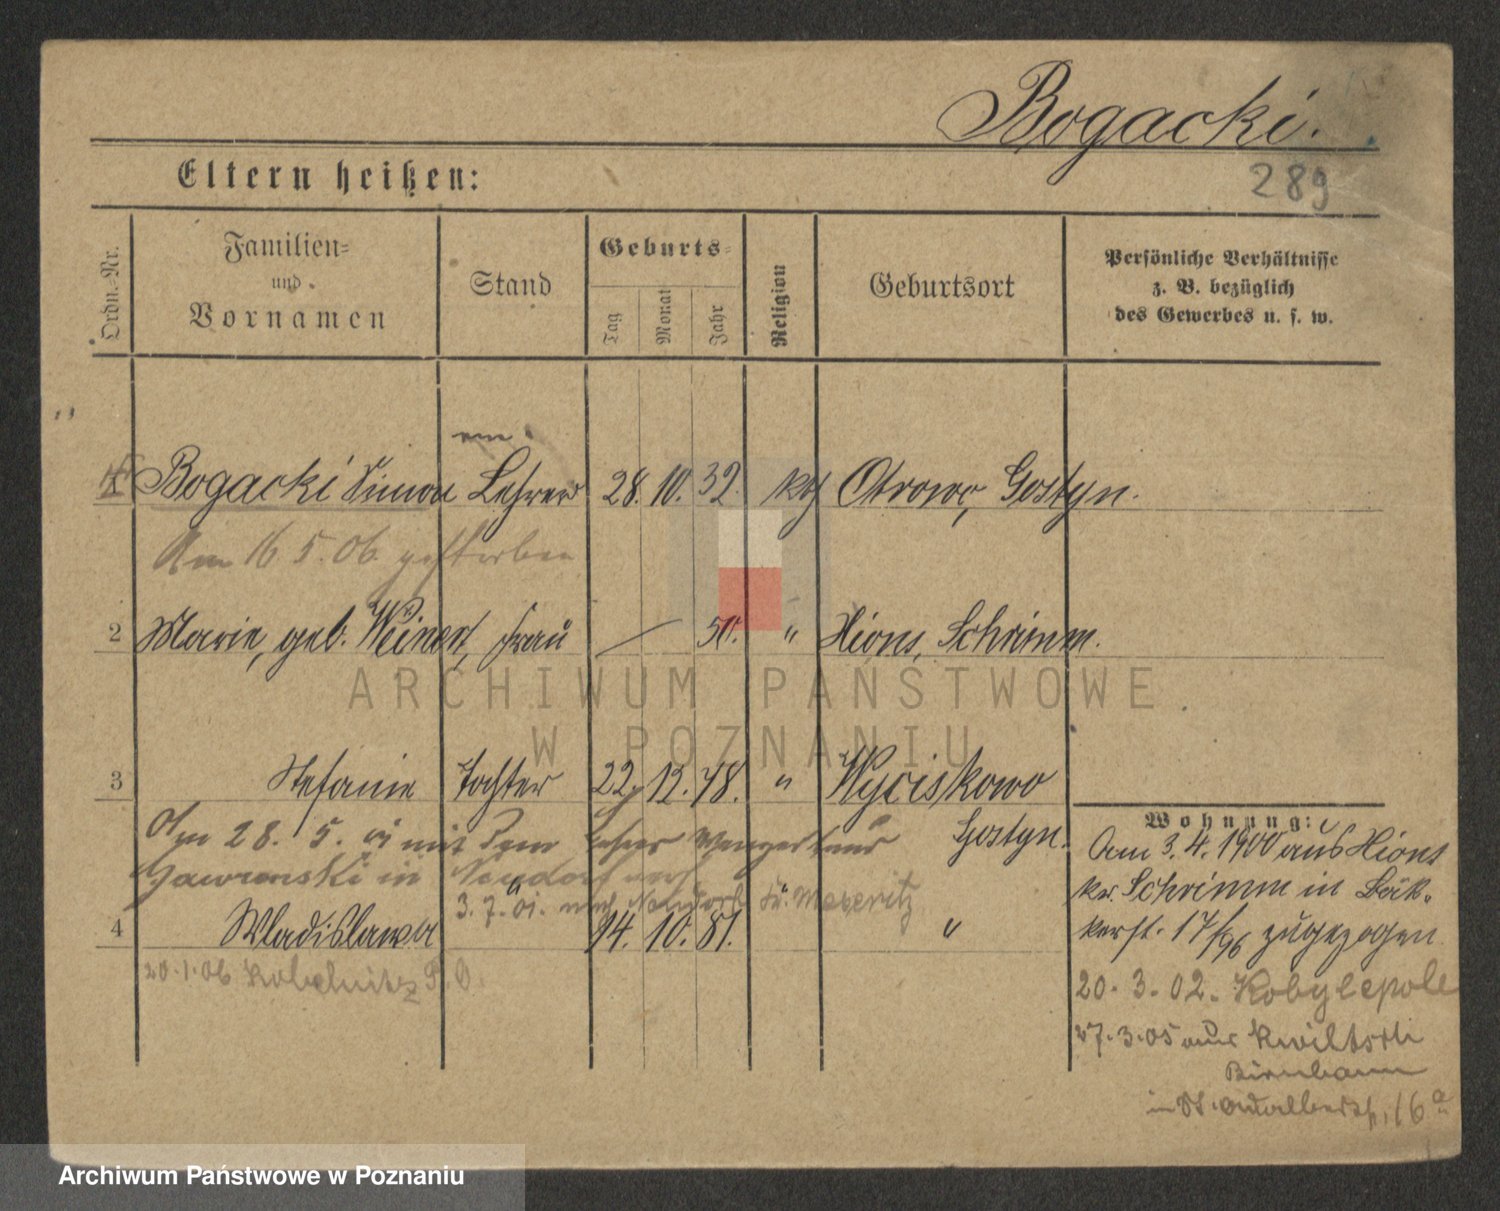 Bogacki.
Eltern heißen:
289
Ordn.-Nr.
Familien- und Vornamen
Stand
Geburts-
Tag
Monat
Jahr
Religion
Geburtsort
Persönliche Verhältnisse
z. B. bezüglich
des Gewerbes u. s. w.
em.
1 Bogacki Simon Lehrer 28. 10. 32. kth Otrowo, Gostyn.
Am 16 5. 06. gestorben
2 Marie, geb. Weinert, Frau — 50. " Xions, Schrimm.
ARCHIWUM PAŃSTWOWE
W POZNANIU
3 Stefanie Tochter 22. 12. 78. " Wyciskowo
Gostyn.
Am 28. 5. 01 mit dem Lehrer
Gawronski in Neudorf
3. 7. 01. nach Neudorf Kr. Meseritz
4 Wladislawa " 14. 10. 81. " "
20.1.06 Kobelnitz P. O.
Wohnung:
Am 3. 4. 1900 aus Xions
kr. Schrimm in Bäk-
kerst. 17/ zugezogen
20. 3. 02. Kobylepole
27.3.05 aus Kwiltsch
Birnbaum
in St. Adalbertstr. 16a
Archiwum Państwowe w Poznaniu